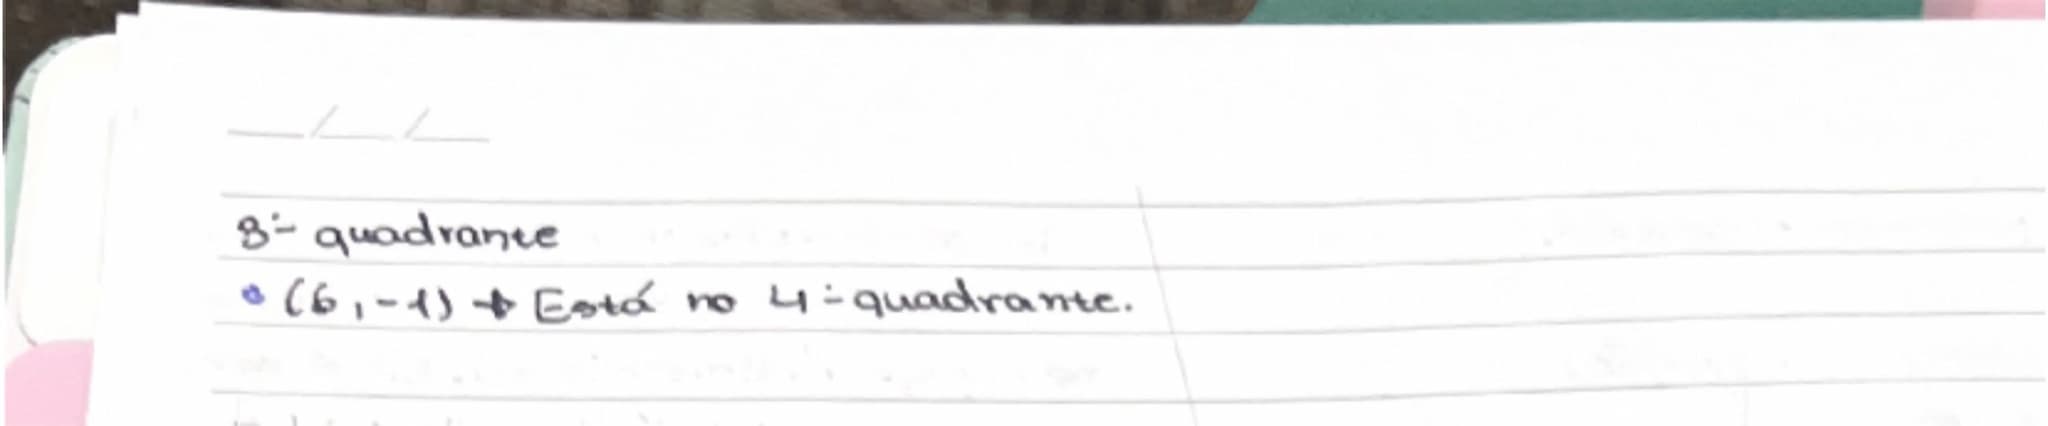 3º quadrante
• (6,-1) → Está no 4º quadrante.